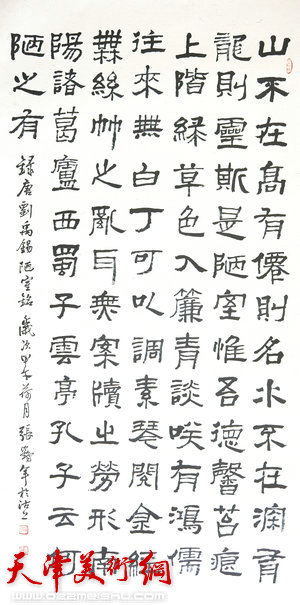 山不在高有僊則名水不在深有
龍則靈斯是陋室惟吾德馨苔痕
上階緑草色入簾青談咲有鴻儒
往來無白丁可以調素琴閱金經
無絲竹之亂耳無案牘之勞形南
陽諸葛廬西蜀子雲亭孔子云何
陋之有
録唐劉禹錫陋室銘 歲次甲午荷月 張壽年於沽上
天津美術網